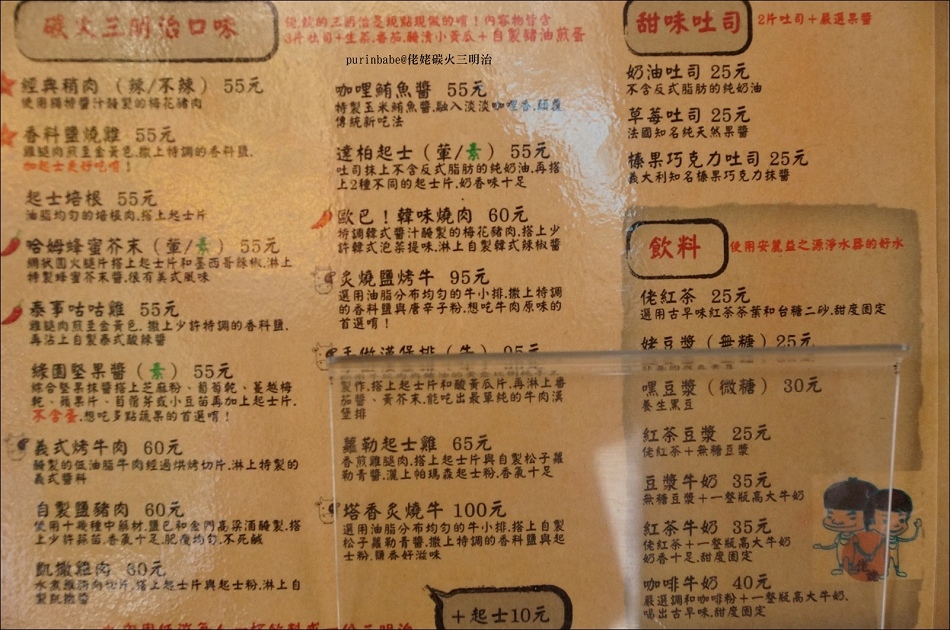 碳火三明治口味
佬姥的三明治是現點現做的唷！內容物皆含
3片吐司+生菜.番茄.醃漬小黃瓜+自製豬油煎蛋
purinbabe@佬姥碳火三明治
經典稍肉（辣/不辣）55元
使用獨特醬汁醃製的梅花豬肉
香料鹽燒雞 55元
雞腿肉煎至金黃色.撒上特調的香料鹽.
加起士更好吃唷！
起士培根 55元
油脂均勻的培根肉.搭上起士片
哈姆蜂蜜芥末（葷/素）55元
煙燻圓火腿片搭上起士片和墨西哥辣椒.淋上
特製蜂蜜芥末醬.很有美式風味
泰事咕咕雞 55元
雞腿肉煎至金黃色. 撒上少許特調的香料鹽.
再沾上自製泰式酸辣醬
綠園堅果醬（素）55元
綜合堅果抹醬搭上芝麻粉、葡萄乾、蔓越梅
乾、蘋果片、苜蓿芽或小豆苗再加上起士片.
不含蛋.想吃多點蔬果的首選唷！
義式烤牛肉 60元
醃製的低油脂牛肉經過烘烤切片.淋上特製的
義式醬料
自製鹽豬肉 60元
使用十幾種中藥材.鹽巴和金門高粱酒醃製.搭
上少許蒜苗.香氣十足.肥瘦均勻.不死鹹
凱撒雞肉 60元
水煮雞胸肉切片.搭上起士片與起士粉.淋上自
製凱撒醬
咖哩鮪魚醬 55元
特製玉米鮪魚醬.融入淡淡咖哩香.顛覆
傳統新吃法
達柏起士（葷/素）55元
吐司抹上不含反式脂肪的純奶油.再搭
上2種不同的起士片.奶香味十足
歐巴！韓味燒肉 60元
特調韓式醬汁醃製的梅花豬肉.搭上少
許韓式泡菜提味.淋上自製韓式辣椒醬
炙燒鹽烤牛 95元
選用油脂分布均勻的牛小排.撒上特調
的香料鹽與唐辛子粉.想吃牛肉原味的
首選唷！
手做漢堡排（牛）95元
製作.搭上起士片和酸黃瓜片.再淋上番
茄醬、黃芥末.能吃出最單純的牛肉漢
堡排
蘿勒起士雞 65元
香煎雞腿肉.搭上起士片與自製松子蘿
勒青醬.灑上帕瑪森起士粉.香氣十足
塔香炙燒牛 100元
選用油脂分布均勻的牛小排.搭上自製
松子蘿勒青醬.撒上特調的香料鹽與起
士粉.鹽香好滋味
+起士10元
甜味吐司
2片吐司+嚴選果醬
奶油吐司 25元
不含反式脂肪的純奶油
草莓吐司 25元
法國知名純天然果醬
榛果巧克力吐司 25元
義大利知名榛果巧克力抹醬
飲料
使用安麗益之源淨水器的好水
佬紅茶 25元
選用古早味紅茶茶葉和台糖二砂.甜度固定
姥豆漿（無糖）25元
嘿豆漿（微糖）30元
養生黑豆
紅茶豆漿 25元
佬紅茶+無糖豆漿
豆漿牛奶 35元
無糖豆漿+一整瓶高大牛奶
紅茶牛奶 35元
佬紅茶+一整瓶高大牛奶
奶香十足.甜度固定
咖啡牛奶 40元
嚴選調和咖啡粉+一整瓶高大牛奶.
喝出古早味.甜度固定